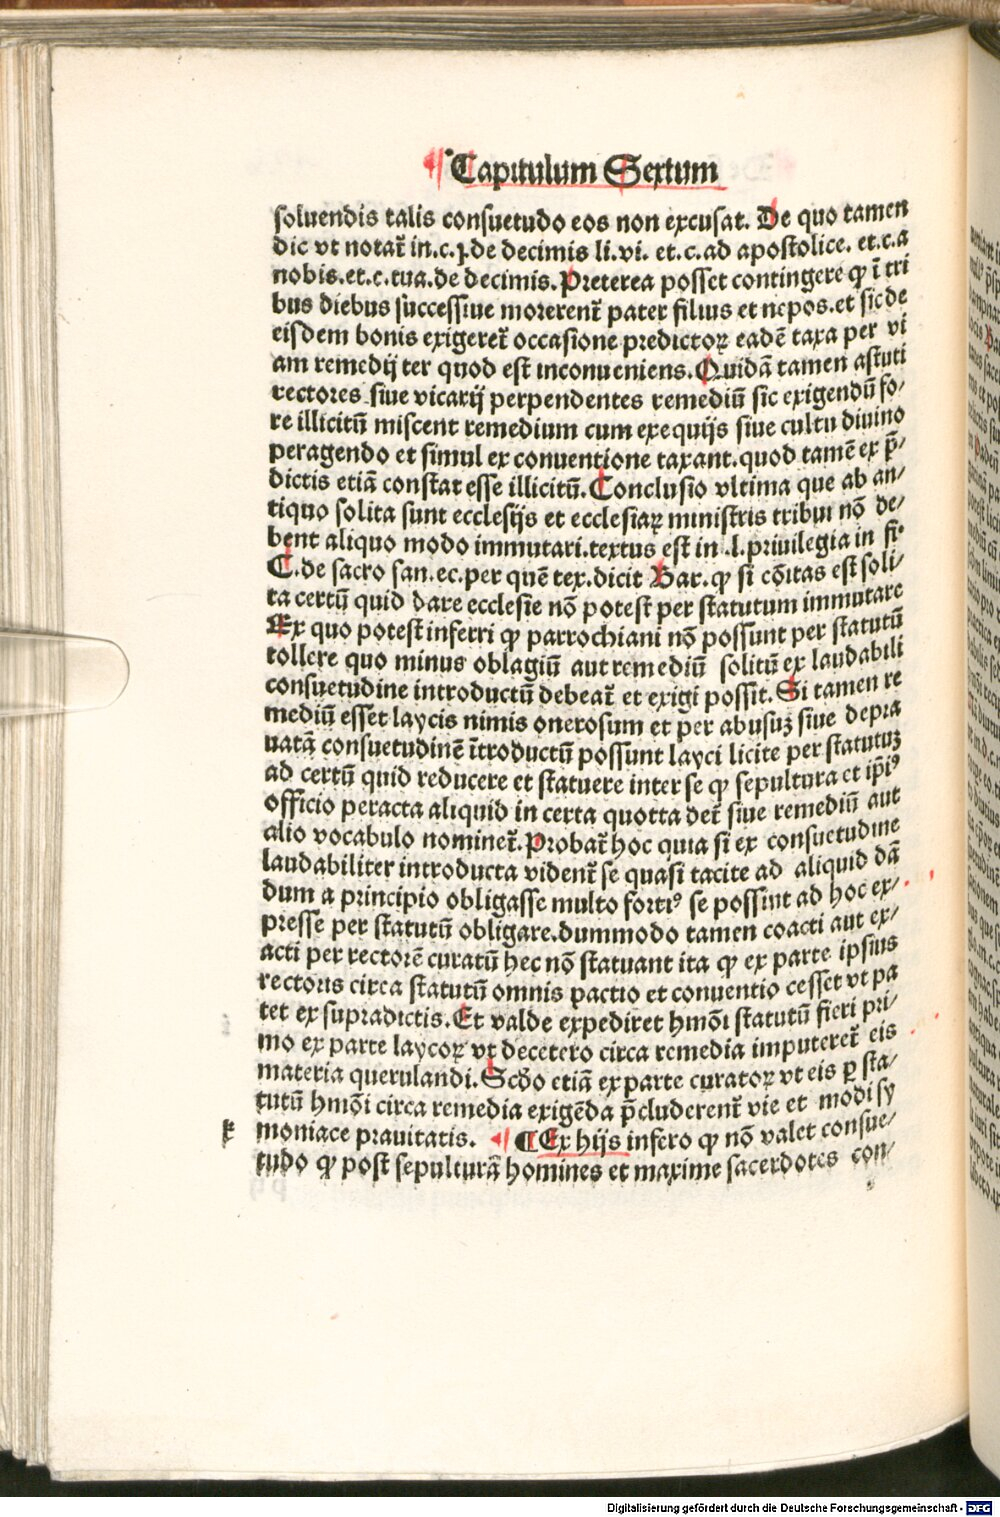 Capitulum Sextum
soluendis talis consuetudo eos non excusat. De quo tamen
dic vt notat̄ in.c.j.de decimis li.vi. et.c.ad apostolice. et.c.a
nobis.et.c.tua.de decimis. Preterea posset contingere ꝙ ī tri
bus diebus successiue morerent̄ pater filius et nepos.et sic de
eisdem bonis exigeret̄ occasione predictoꝝ eadē taxa per vi
am remedij ter quod est inconueniens. Quidā tamen astuti
rectores siue vicarij perpendentes remediū sic exigendū fo⸗
re illicitū miscent remedium cum exequijs siue cultu diuino
peragendo et simul ex conuentione taxant.quod tamē ex p̄⸗
dictis etiā constat esse illicitū. Conclusio vltima que ab an⸗
tiquo solita sunt ecclesijs et ecclesiaꝝ ministris tribui nō de⸗
bent aliquo modo immutari.textus est in .l.priuilegia in fi.
C.de sacro san.ec.per quē tex.dicit Bar.ꝙ si cōitas est soli⸗
ta certū quid dare ecclesie nō potest per statutum immutare
Ex quo potest inferri ꝙ parrochiani nō possunt per statutū
tollere quo minus oblagiū aut remediū solitū ex laudabili
consuetudine introductū debeat̄ et exigi possit. Si tamen re
mediū esset laycis nimis onerosum et per abusuꝫ siue depra
uatā consuetudinē ītroductū possunt layci licite per statutuꝫ
ad certū quid reducere et statuere inter se ꝙ sepultura et ip̄iꝰ
officio peracta aliquid in certa quotta det̄ siue remediū aut
alio vocabulo nominet̄. Probat̄ hoc quia si ex consuetudine
laudabiliter introducta vident̄ se quasi tacite ad aliquid dā
dum a principio obligasse multo fortiꝰ se possint ad hoc ex⸗
presse per statutū obligare.dummodo tamen coacti aut ex⸗
acti per rectorē curatū hec nō statuant ita ꝙ ex parte ipsius
rectoris circa statutū omnis pactio et conuentio cesset vt pa
tet ex supradictis. Et valde expediret hmōi statutū fieri pri⸗
mo ex parte laycoꝝ vt decetero circa remedia imputeret̄ eis
materia querulandi. Scďo etiā ex parte curatoꝝ vt eis ꝑ sta⸗
tutū hmōi circa remedia exigēda p̄cluderent̄ vie et modi sy
k moniace prauitatis. ¶ Ex hijs infero ꝙ nō valet consue⸗
tudo ꝙ post sepulturā homines et maxime sacerdotes con⸗
Digitalisierung gefördert durch die Deutsche Forschungsgemeinschaft - DFG